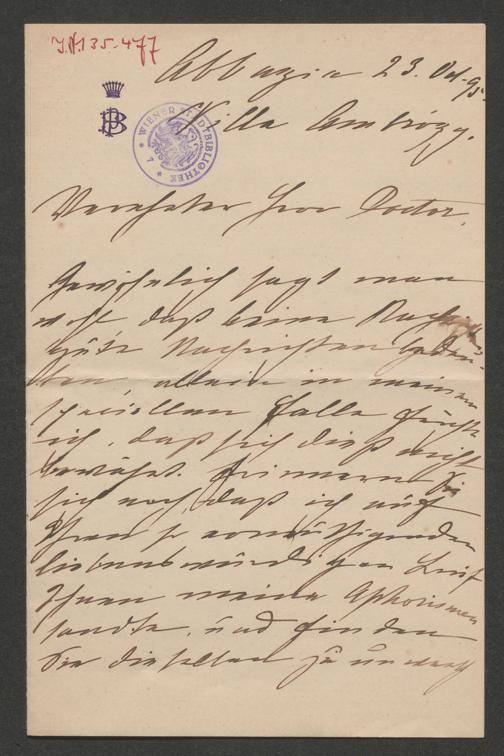 J.N.135.477
Abbazia 23. Oct. 95.
Villa Ambrózy.
BP
WIENER STADTBIBLIOTHEK
Verehrter Herr Doctor,
Gewöhnlich sagt man
wohl daß keine Nach-
gute Nachrichten bedeu-
ten, allein in meinem
speciellen Falle fürchte
ich, daß sich dieß nicht
bewährt. Erinnern Sie
sich noch, daß ich auf
Ihren so
liebenswürdigen Brief
Ihnen meine Aphorismen
sandte, und finden
Sie dieselben zu